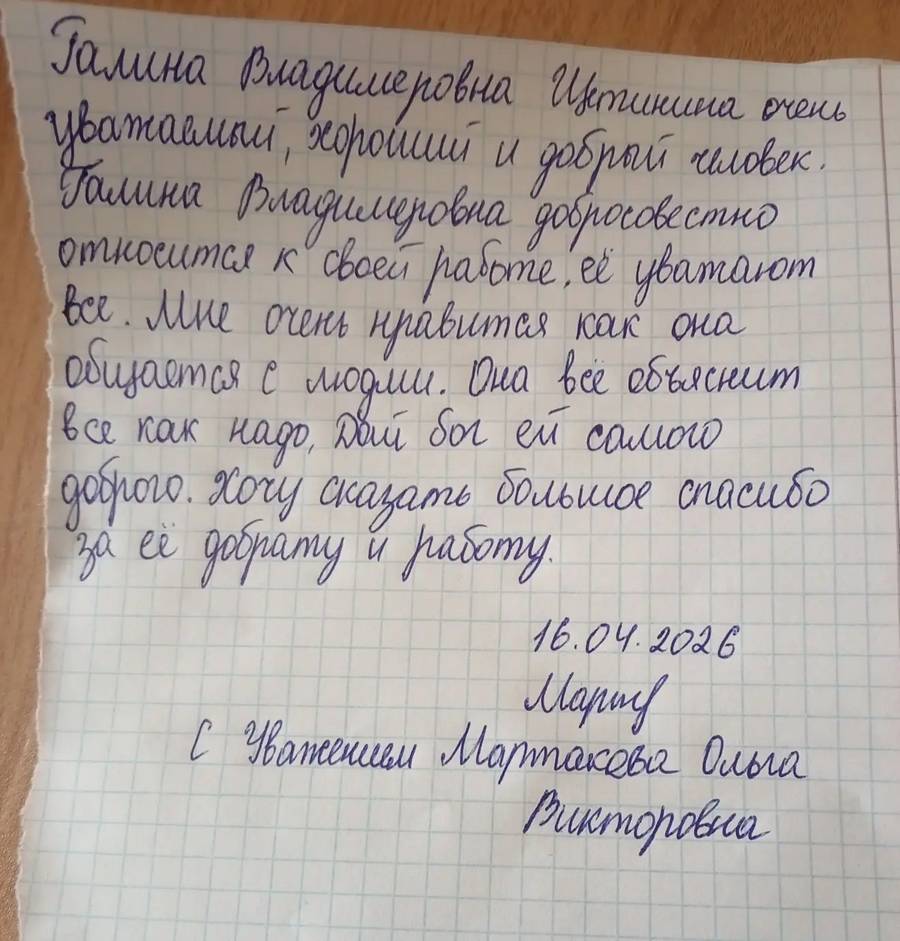 Галина Владимеровна Щетинина очень
уважаемый, хороший и добрый человек.
Галина Владимеровна добросовестно
относится к своей работе, её уважают
все. Мне очень нравится как она
общается с людми. Она всё объяснит
все как надо, Дай бог ей самого
доброго. Хочу сказать большое спасибо
за её доброту и работу.
16.04.2026
С Уважением Мартакова Ольга
Викторовна